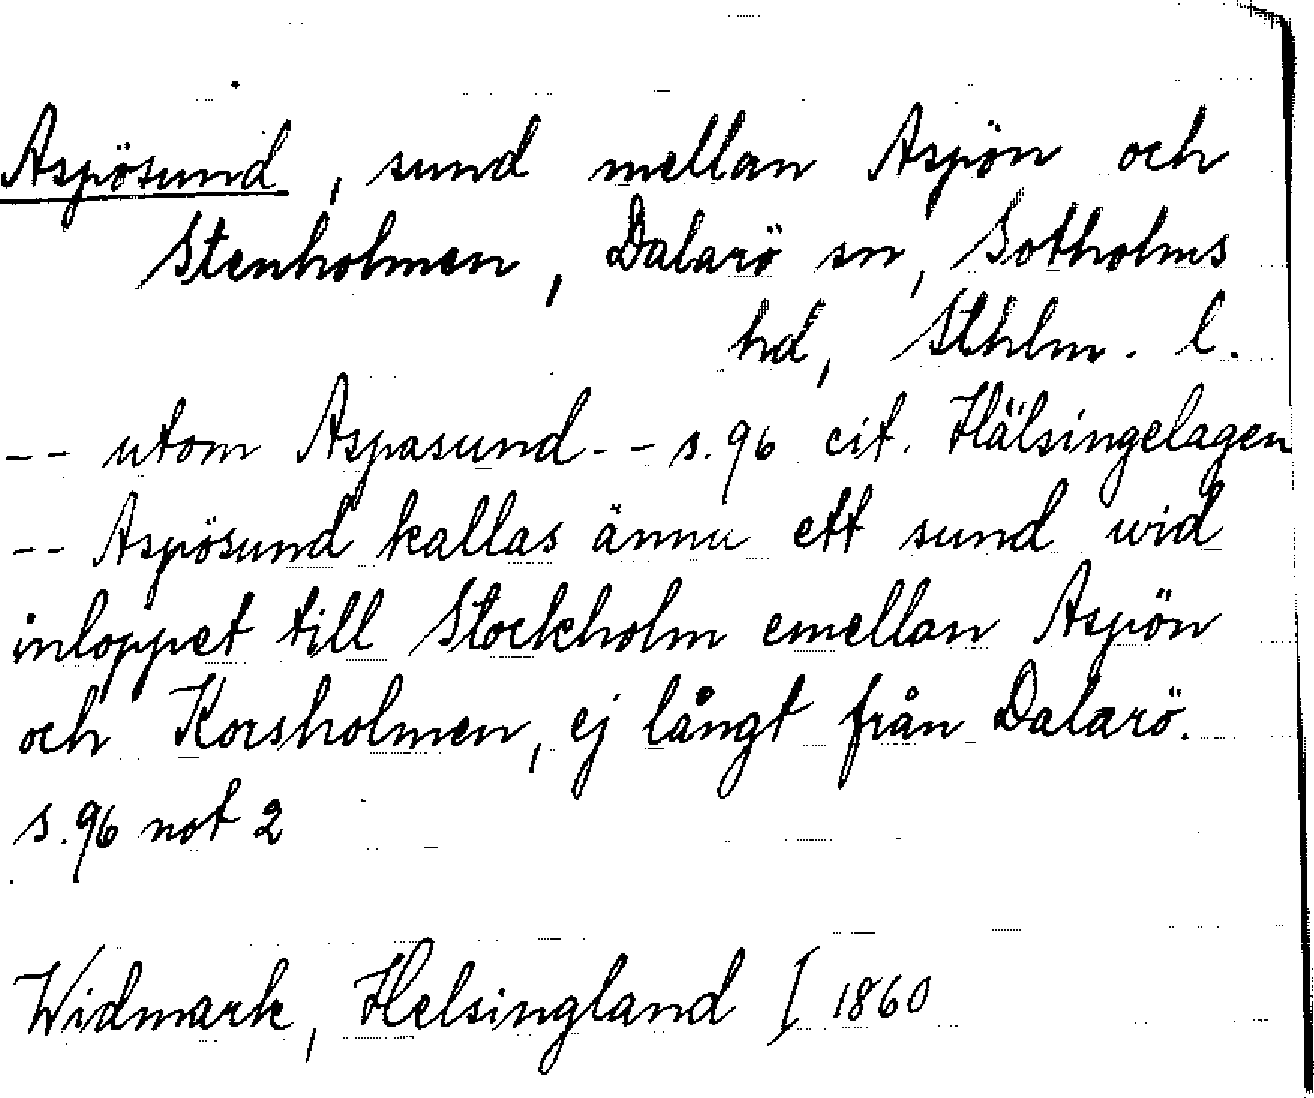 Aspösund, sund mellan Aspön och
Stenholmen, Dalarö sn, Sotholms
hd, Sthlm. l.
-- utom Aspasund -- s. 96 cit. Hälsingelagen
-- Aspösund kallas ännu ett sund wid
inloppet till Stockholm emellan Aspön
och Korsholmen, ej långt från Dalarö.
s. 96 not 2
Widmark, Helsingland I 1860